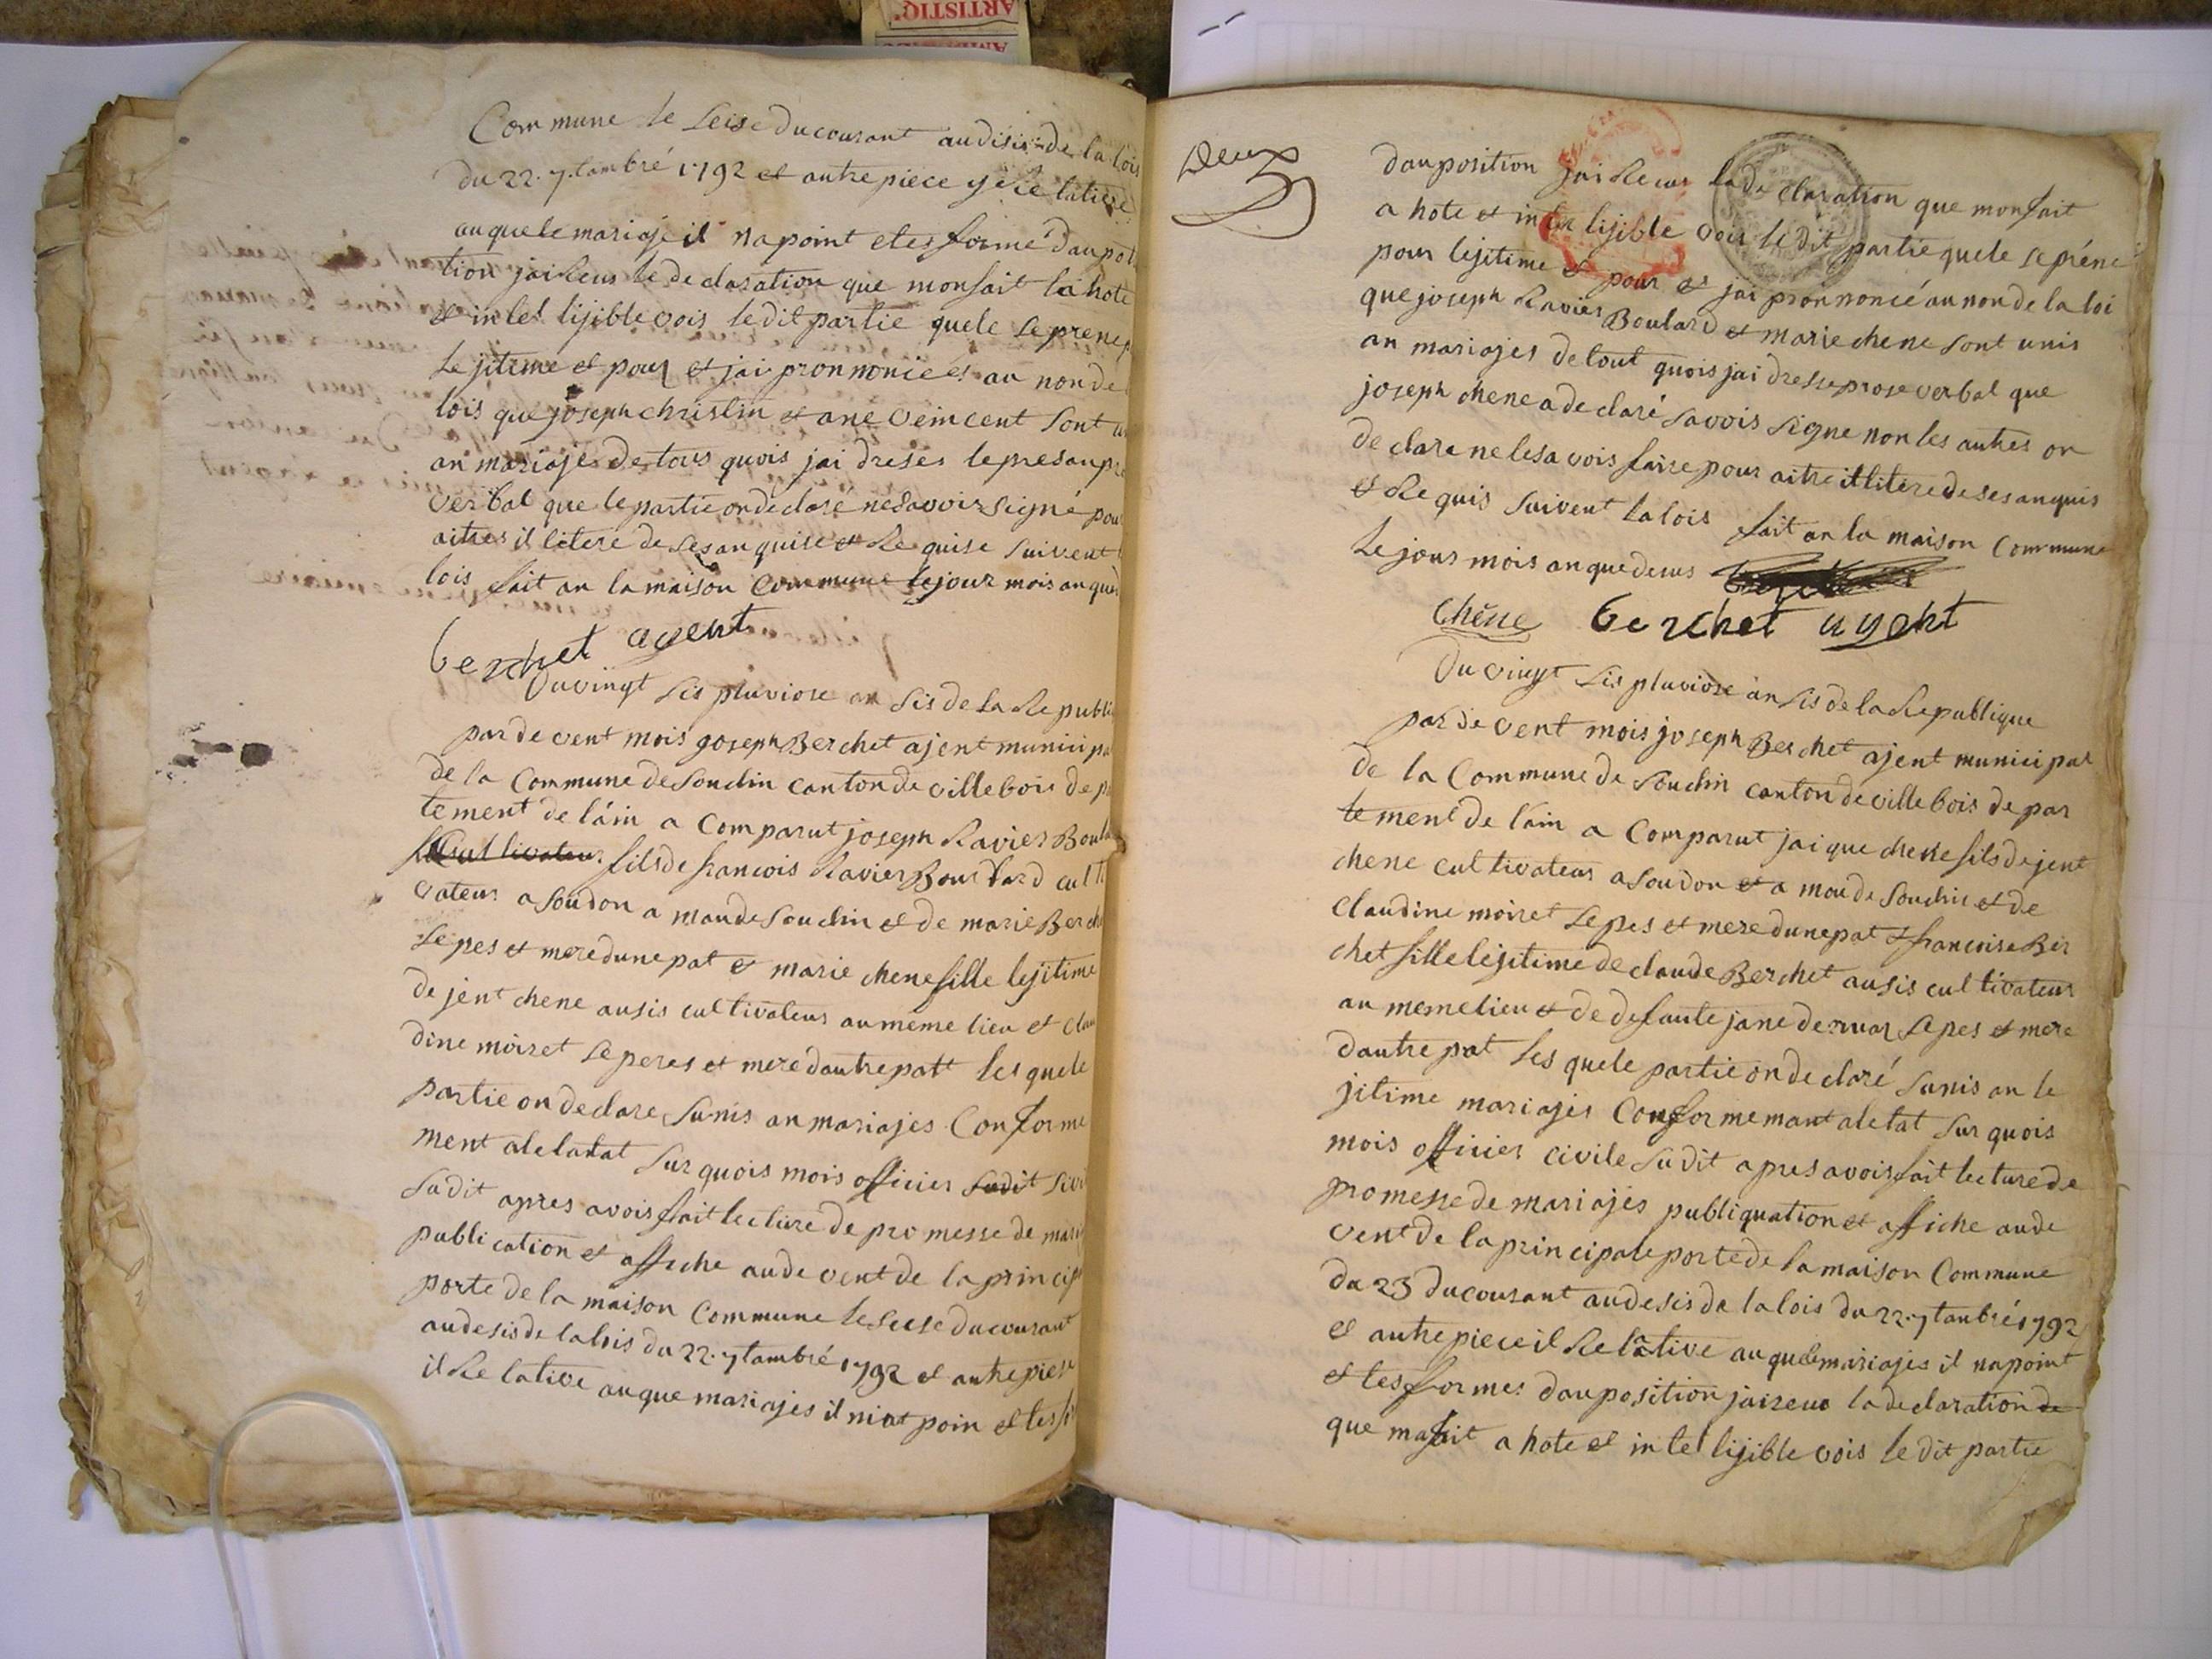 Commune le seise du courant audisis de la lois
du 22. 7.tambré 1792 et autre piece y relative
au quele mariaje il na point etes formé daupo
tion jai Reus le declaration que mon fait la hote
et intel lijible vois ledit partie quele se prene
lejitime et pour et jai pronnonicé au non de
lois que joseph christin et ane veincent sont u
an mariaje de tous quois jai dreses le presan pr
verbal que le partie on declaré ne savoir signé pour
aitres il litere de ses anquise et Re quise suivent
lois fait an la maison Commune le jour mois an que
berchet agent
Du vingt sis pluviose an sis de la Republi
par de vent mois joseph Berchet ajent municipa
de la Commune de Soudin canton de villebois de p
tement de l'ain a Comparut joseph Ravier Boula
fils de francois Ravier Bourlard culti
vateur a soudon a mande Soudin et de marie Berch
se pes et mere dune pat et marie chene fille lejitime
de jent chene ausis cultivateur au meme lieu et clau
dine moiret se peres et meré dautre patt les quele
partie on declare sunis an mariajes Conforme
ment a letatat sur quois mois officier sudit sivi
sudit apres avois fait lecture de promesse de mari
publication et affiche au de vent de la princip
porte de la maison Commune le seise du courant
audesis de la lois du 22. 7tambré 1792 et autre piese
il Relative au que mariajes il niat poin et les f
ARTISTIQ
Deux
dauposition jai Reeus la de claration que mon fait
a hote et intel lijible vois ledit partie quele se préne
pour lejitime et pour et jai pronnoncé au non de la loi
que joseph Ravier Boulard et marie chene sont unis
an mariajes de tout quois jai dresse prose verbal que
joseph chene a de claré savois signe non les autres on
de clare ne lesavois faire pour aitre il litere de ses anquis
et Requis suivent la lois fait an la maison Commune
le jours mois an que desus
Chêne berchet agent
Du vingt sis pluviose an sis de la Republique
par de vent mois joseph Berchet ajent municipal
de la Commune de Soudin canton de villebois de par
tement de lain a Comparut jaique chene fils de jent
chene cultivateur a Soudon et a mande Soudin et de
claudine moiret se pes et mere dune pat et francoise Ber
chet fille lejitime de claude Berchet ausis cultivateur
au meme lieu et de defaute jane dervar se pes et mere
dautre pat les quele partie on de claré sunis an le
jitime mariajes Conformemant a letat sur quois
mois officier civile sudit apres avois fait lecture de
promesse de mariajes publiquation et affiche au de
vent de la principale porte de la maison Commune
du 23 du courant au desis de la lois du 22. 7tanbré 1792
et autre piece il Relative au quele mariajes il na point
et tes formes dauposition jai reus la declaration de
que mafait a hote et intel lijible vois le dit partie